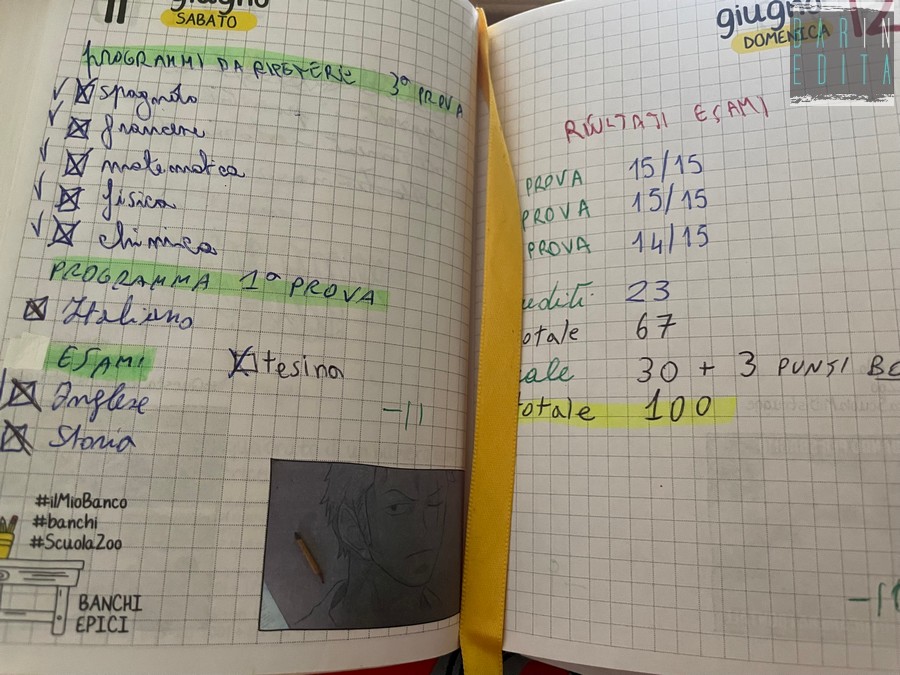 11 giugno
SABATO
PROGRAMMI DA RIPETERE 3ª PROVA
spagnolo
francese
matematica
fisica
chimica
PROGRAMMA 1ª PROVA
Italiano
ESAMI
tesina
Inglese
Storia
-11
#ilMioBanco
#banchi
#ScuolaZoo
BANCHI
EPICI
giugno 12
DOMENICA
BARIN
EDITA
RISULTATI ESAMI
PROVA 15/15
PROVA 15/15
PROVA 14/15
rediti: 23
otale 67
ale 30 + 3 PUNTI BO
totale 100